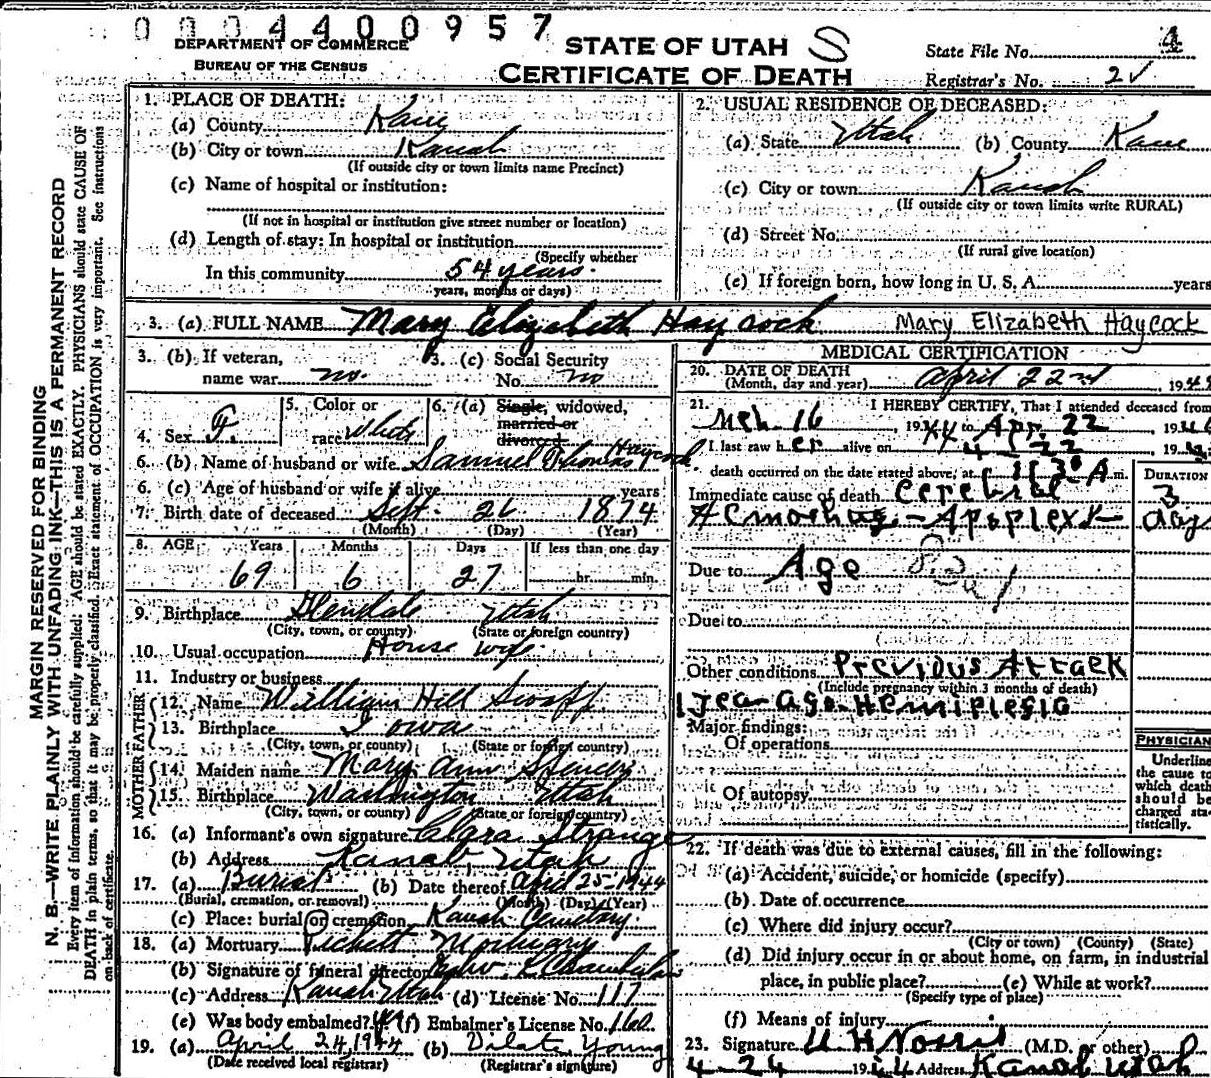 0004400957
DEPARTMENT OF COMMERCE
BUREAU OF THE CENSUS
STATE OF UTAH S
CERTIFICATE OF DEATH
State File No. 4
Registrar's No. 2
MARGIN RESERVED FOR BINDING
N. B.—WRITE PLAINLY WITH UNFADING INK—THIS IS A PERMANENT RECORD
Every item of information should be carefully supplied. AGE should be stated EXACTLY. PHYSICIANS should state CAUSE OF
DEATH in plain terms, so that it may be properly classified. Exact statement of OCCUPATION is very important. See instructions
on back of certificate.
1. PLACE OF DEATH:
(a) County Kane
(b) City or town Kanab
(If outside city or town limits name Precinct)
(c) Name of hospital or institution:
(If not in hospital or institution give street number or location)
(d) Length of stay: In hospital or institution
(Specify whether
In this community 54 years.
years, months or days)
2. USUAL RESIDENCE OF DECEASED:
(a) State Utah (b) County Kane
(c) City or town Kanab
(If outside city or town limits write RURAL)
(d) Street No.
(If rural give location)
(e) If foreign born, how long in U. S. A. years
3. (a) FULL NAME Mary Elizabeth Haycock Mary Elizabeth Haycock
3. (b) If veteran, name war no.
3. (c) Social Security No. no
4. Sex F.
5. Color or race White
6. (a) Single, widowed, married or divorced
6. (b) Name of husband or wife Samuel Thomas Haycock
6. (c) Age of husband or wife if alive years
7. Birth date of deceased Sept. 26 1874
(Month) (Day) (Year)
8. AGE Years Months Days If less than one day
69 6 27 hr. min.
9. Birthplace Glendale Utah
(City, town, or county) (State or foreign country)
10. Usual occupation House wife
11. Industry or business
FATHER
12. Name William Hill Swapp
13. Birthplace Iowa
(City, town, or county) (State or foreign country)
MOTHER
14. Maiden name Mary Ann
15. Birthplace Washington Utah
(City, town, or county) (State or foreign country)
16. (a) Informant's own signature Clara Strange
(b) Address Kanab, Utah
17. (a) Burial (b) Date thereof April 25-1944
(Burial, cremation, or removal) (Month) (Day) (Year)
(c) Place: burial or cremation Kanab Cemetary.
18. (a) Mortuary Mortuary
(b) Signature of funeral director Chamberlain
(c) Address Kanab Utah (d) License No. 117
(e) Was body embalmed? yes (f) Embalmer's License No. 160
19. (a) April 24, 1944 (b) Young
(Date received local registrar) (Registrar's signature)
MEDICAL CERTIFICATION
20. DATE OF DEATH
(Month, day and year) April 22nd, 194
21. I HEREBY CERTIFY, That I attended deceased from
Mch. 16, 1944 to Apr. 22 194
I last saw her alive on 4-22 19
death occurred on the date stated above, at A m.
DURATION
Immediate cause of death Cerebral
Hemorhage - Apoplexy 3 days
Due to Age
Due to
Other conditions Previous Attack
(Include pregnancy within 3 months of death)
1 Year Ago-Hemiplegia
Major findings:
Of operations
Of autopsy
PHYSICIAN
Underline
the cause to
which death
should be
charged sta-
tistically.
22. If death was due to external causes, fill in the following:
(a) Accident, suicide, or homicide (specify)
(b) Date of occurrence
(c) Where did injury occur?
(City or town) (County) (State)
(d) Did injury occur in or about home, on farm, in industrial
place, in public place? (e) While at work?
(Specify type of place)
(f) Means of injury
23. Signature Norris (M.D. or other)
4-24 1944 Address Kanab Utah